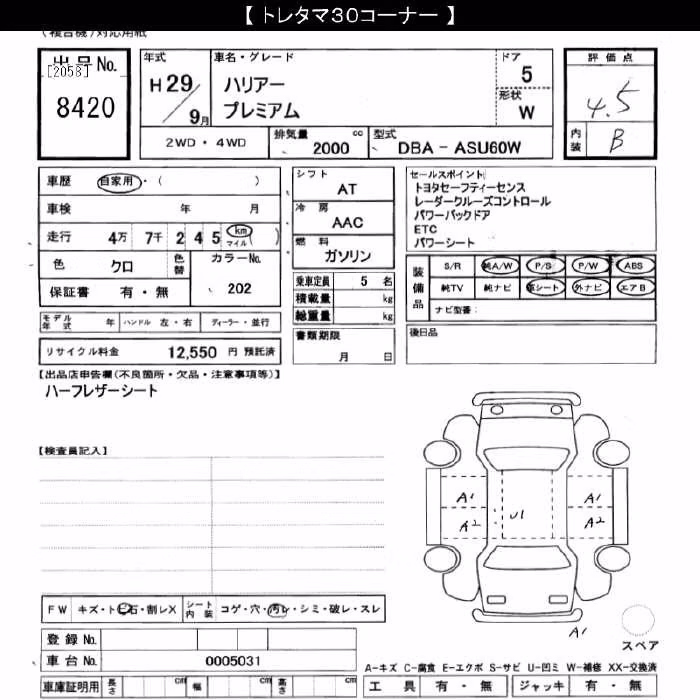 【 トレタマ30コーナー 】
(複合機)対応用紙
出品No. [2058] 8420
年式 H29/9月
車名・グレード ハリアー プレミアム
ドア 5
形状 W
評価点 4.5
内装 B
2WD・4WD 排気量 2000 cc 型式 DBA - ASU60W
車歴 自家用・( )
車検 年 月
走行 4万 7千 2 4 5 km マイル ( )
色 クロ 色替 カラーNo. 202
保証書 有・無
シフト AT
冷房 AAC
燃料 ガソリン
乗車定員 5 名
積載量 kg
総重量 kg
書類期限 月 日
セールスポイント
トヨタセーフティーセンス
レーダークルーズコントロール
パワーバックドア
ETC
パワーシート
装備品 S/R 純A/W P/S P/W ABS
純TV 純ナビ 革シート 外ナビ エアB
ナビ型番:
後日品
モデル年式 年 ハンドル 左・右 ディーラー・並行
リサイクル料金 12,550 円 預託済
【出品店申告欄(不良箇所・欠品・注意事項等)】
ハーフレザーシート
【検査員記入】
A1 A1
A2 U1 A2
A1
スペア
FW キズ・トビ石・割レX シート内装 コゲ・穴・汚レ・シミ・破レ・スレ
登録No.
車台No. 0005031
車庫証明用 長さ cm 幅 cm 高さ cm
A-キズ C-腐食 E-エクボ S-サビ U-凹ミ W-補修 XX-交換済
工具 有・無 ジャッキ 有・無